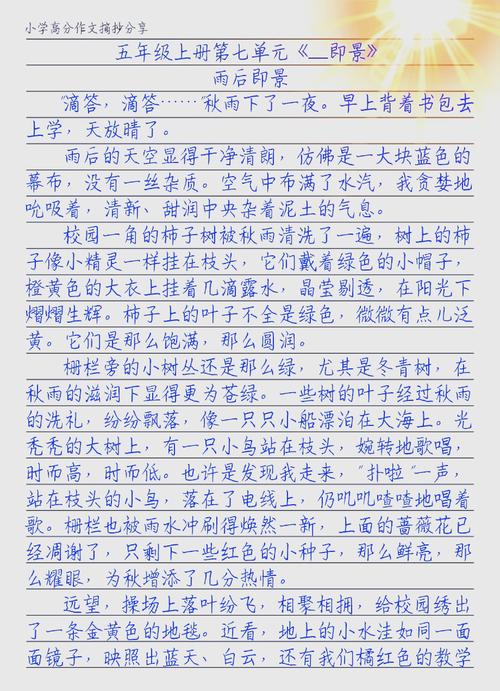 小学高分作文摘抄分享
五年级上册第七单元《__即景》
雨后即景
“滴答，滴答……”秋雨下了一夜。早上背着书包去
上学，天放晴了。
雨后的天空显得干净清朗，仿佛是一大块蓝色的
幕布，没有一丝杂质。空气中布满了水汽，我贪婪地
吮吸着，清新、甜润中央杂着泥土的气息。
校园一角的柿子树被秋雨清洗了一遍，树上的柿
子像小精灵一样挂在枝头，它们戴着绿色的小帽子，
橙黄色的大衣上挂着几滴露水，晶莹剔透，在阳光下
熠熠生辉。柿子上的叶子不全是绿色，微微有点儿泛
黄。它们是那么饱满，那么圆润。
栅栏旁的小树丛还是那么绿，尤其是冬青树，在
秋雨的滋润下显得更为苍绿。一些树的叶子经过秋雨
的洗礼，纷纷飘落，像一只只小船漂泊在大海上。光
秃秃的大树上，有一只小鸟站在枝头，婉转地歌唱，
时而高，时而低。也许是发现我走来，“扑啦”一声，
站在枝头的小鸟，落在了电线上，仍叽叽喳喳地唱着
歌。栅栏也被雨水冲刷得焕然一新，上面的蔷薇花已
经凋谢了，只剩下一些红色的小种子，那么鲜亮，那
么耀眼，为秋增添了几分热情。
远望，操场上落叶纷飞，相聚相拥，给校园绣出
了一条金黄色的地毯。近看，地上的小水洼如同一面
面镜子，映照出蓝天、白云，还有我们橘红色的教学